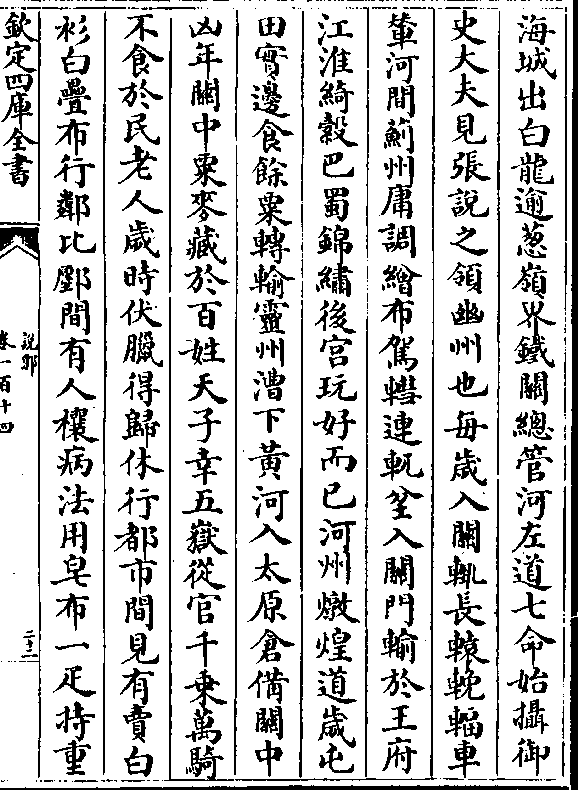 海城出白龍逾蔥嶺界鐵關總管河左道七命始攝御
史大夫見張說之領幽州也每歲入關輒長轅輓輻車
輦河間薊州庸調繒布駕轊連軏坌入關門輸於王府
江淮綺縠巴蜀錦繡後宮玩好而已河州燉煌道歲屯
田實邊食餘粟轉輸靈州漕下黃河入太原倉備關中
凶年關中粟麥藏於百姓天子幸五嶽從官千乘萬騎
不食於民老人歲時伏臘得歸休行都市間見有賣白
衫白疊布行鄰比鄽間有人禳病法用皂布一疋持重
欽定四庫全書
說郛
卷一百十四
二十二